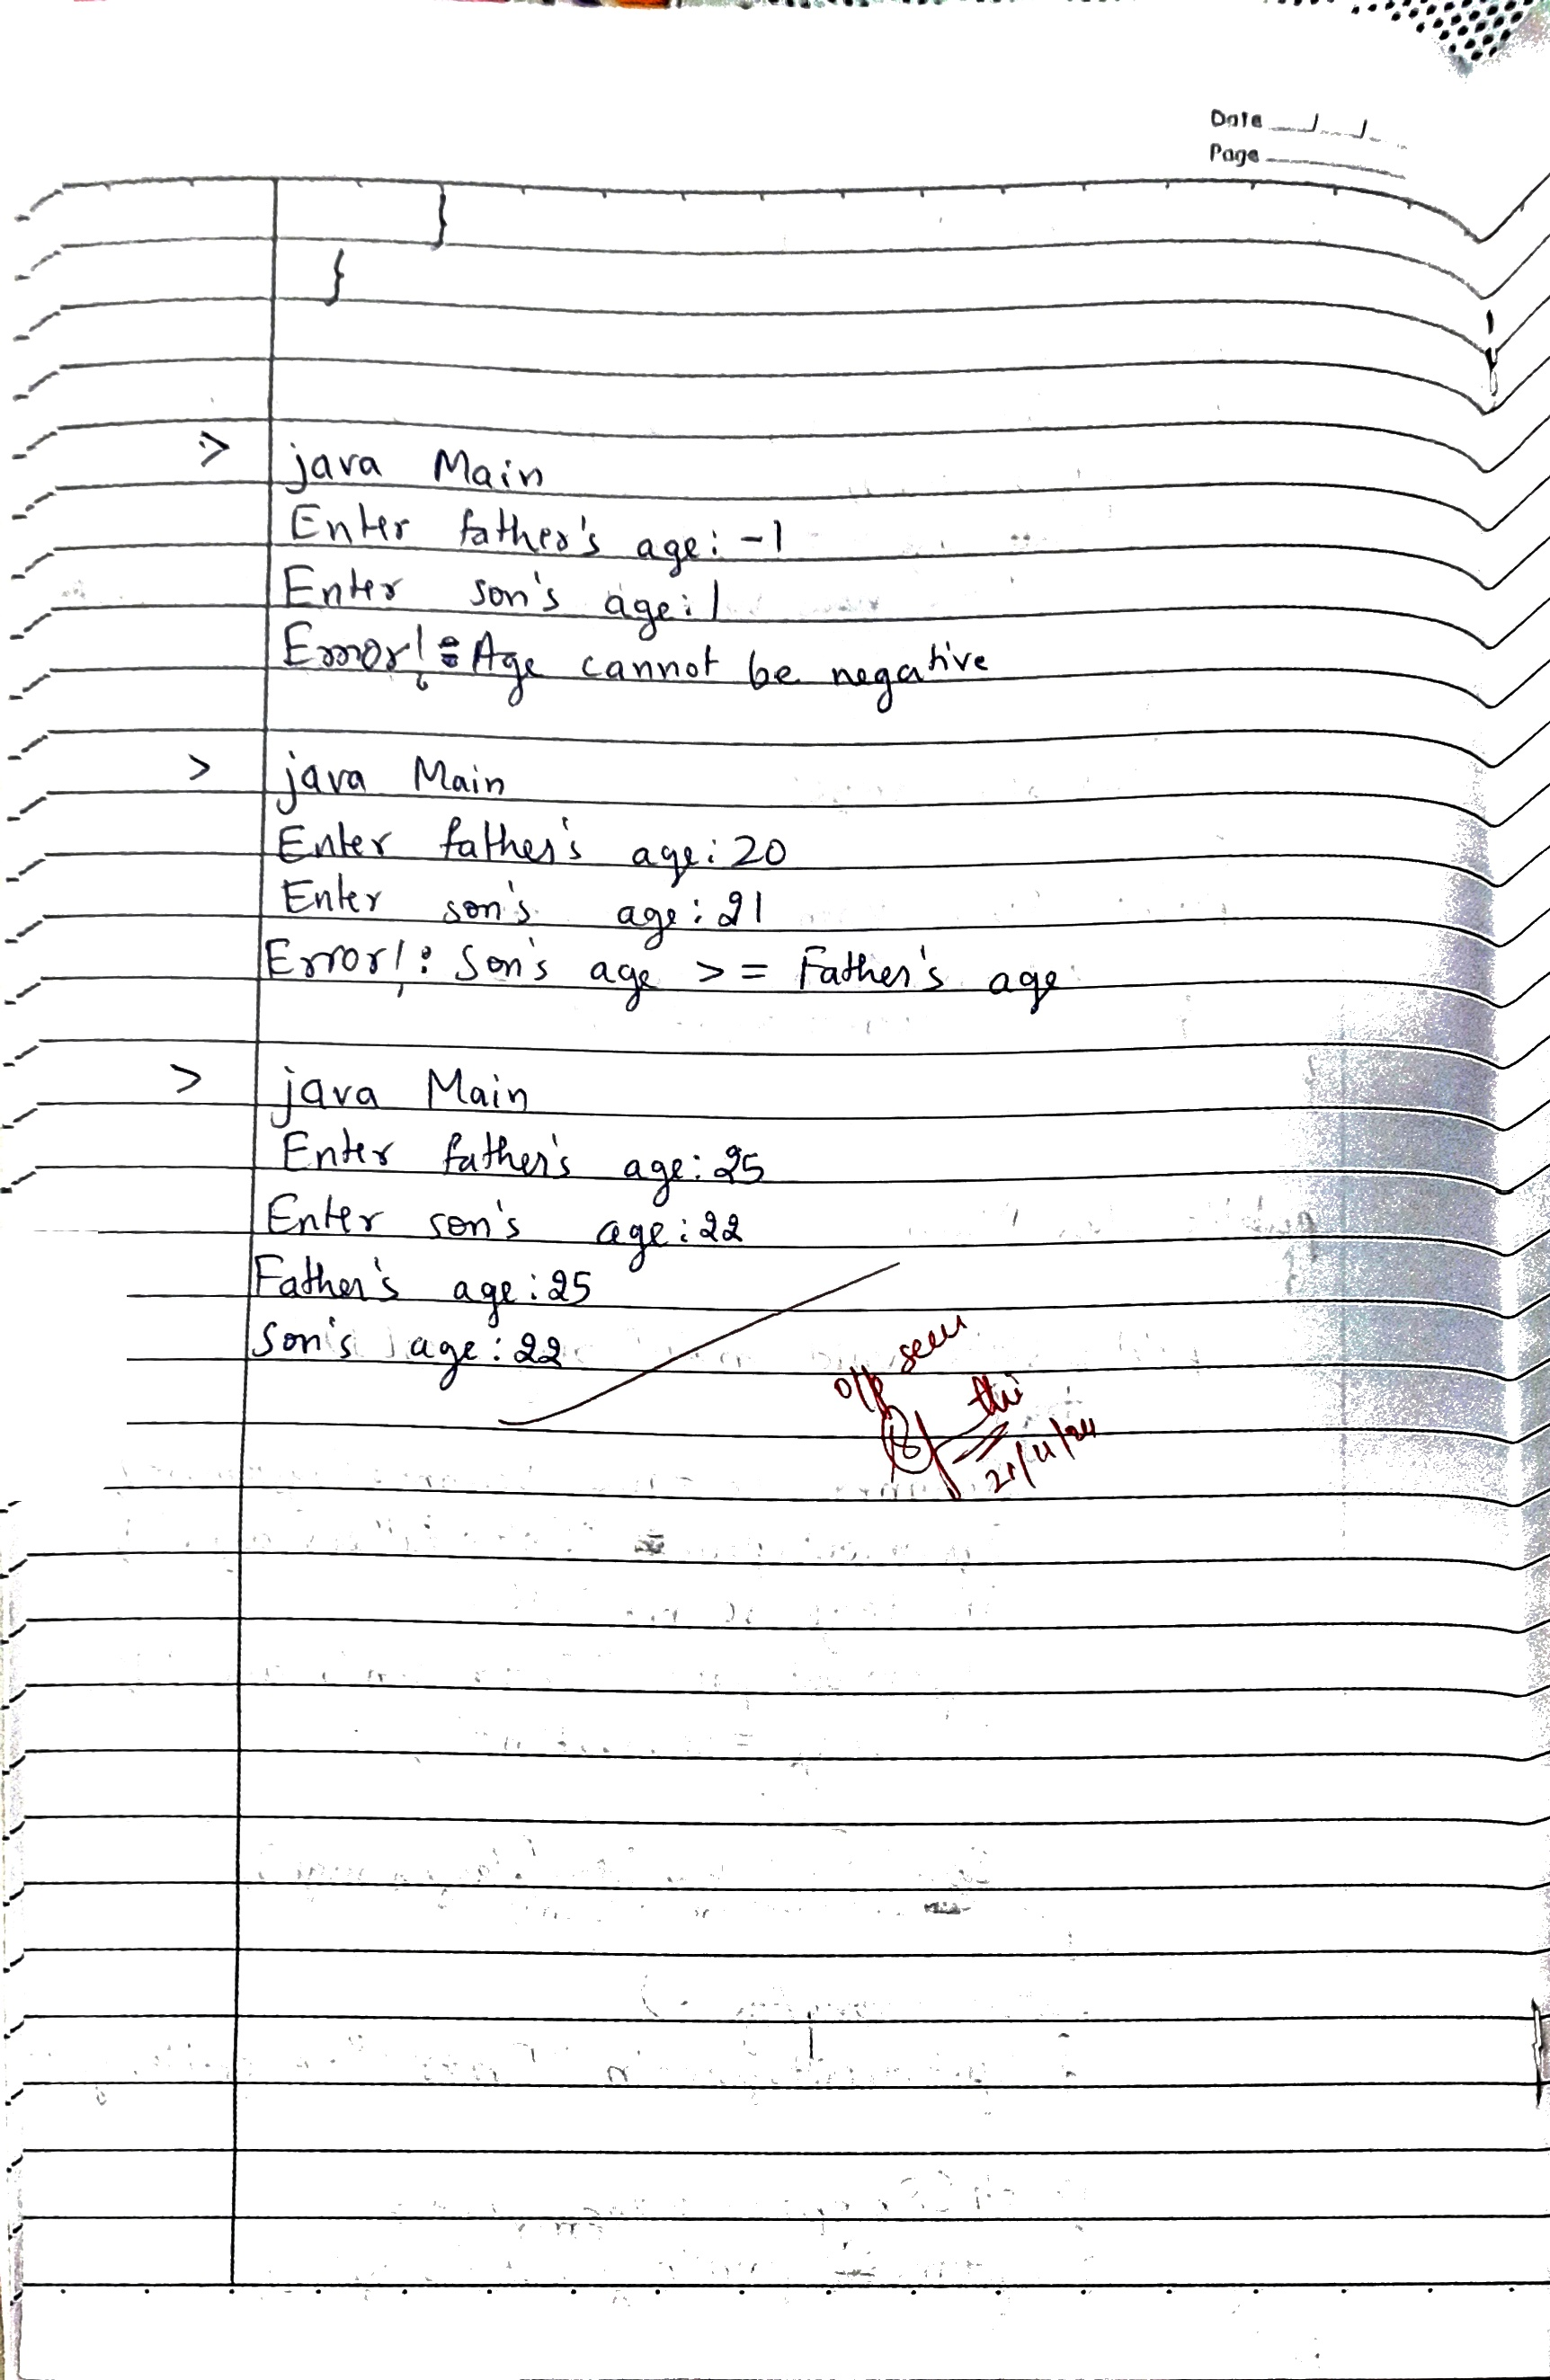 Date
Page
}
}
> java Main
Enter father's age: -1
Enter son's age: 1
Error!: Age cannot be negative
> java Main
Enter father's age: 20
Enter son's age: 21
Error!: Son's age >= Father's age
> java Main
Enter father's age: 25
Enter son's age: 22
Father's age: 25
Son's age: 22
o/p seen